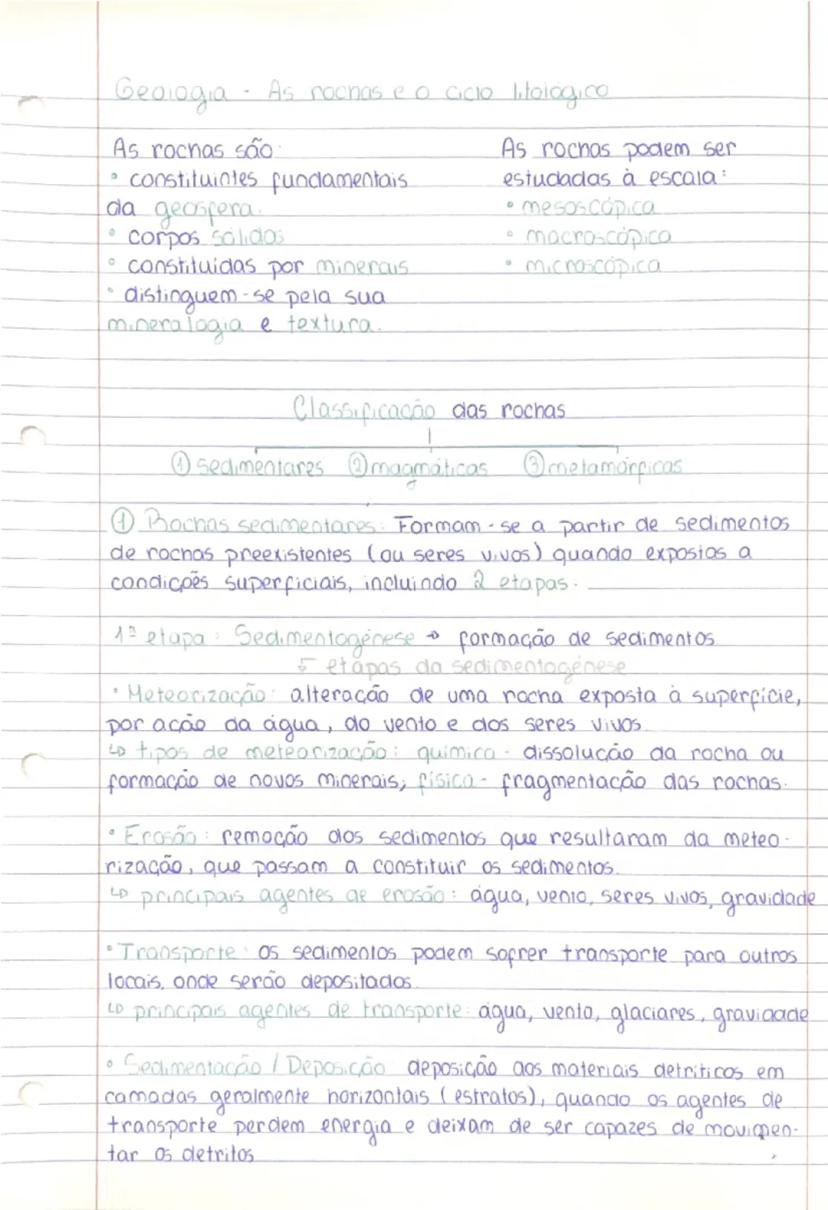 Geologia - As rochas e o ciclo litológico
As rochas são:
• constituintes fundamentais
da geosfera.
• corpos sólidos
• constituidas por minerais
• distinguem-se pela sua
mineralogia e textura.
As rochas podem ser
estudadas à escala:
• mesoscópica
• macroscópica
• microscópica
Classificação das rochas
① sedimentares ② magmáticas ③ metamórficas
① Rochas sedimentares: Formam-se a partir de sedimentos
de rochas preexistentes (ou seres vivos) quando expostas a
condições superficiais, incluindo 2 etapas.
1ª etapa: Sedimentogénese → formação de sedimentos
5 etapas da sedimentogénese
• Meteorização: alteração de uma rocha exposta à superfície,
por ação da água, do vento e dos seres vivos
↳ tipos de meteorização: química - dissolução da rocha ou
formação de novos minerais; física - fragmentação das rochas.
• Erosão: remoção dos sedimentos que resultaram da meteo-
rização, que passam a constituir os sedimentos.
↳ principais agentes de erosão: água, vento, seres vivos, gravidade
• Transporte: os sedimentos podem sofrer transporte para outros
locais, onde serão depositados.
↳ principais agentes de transporte: água, vento, glaciares, gravidade
• Sedimentação / Deposição: deposição dos materiais detríticos em
camadas geralmente horizontais (estratos), quando os agentes de
transporte perdem energia e deixam de ser capazes de movimen-
tar os detritos